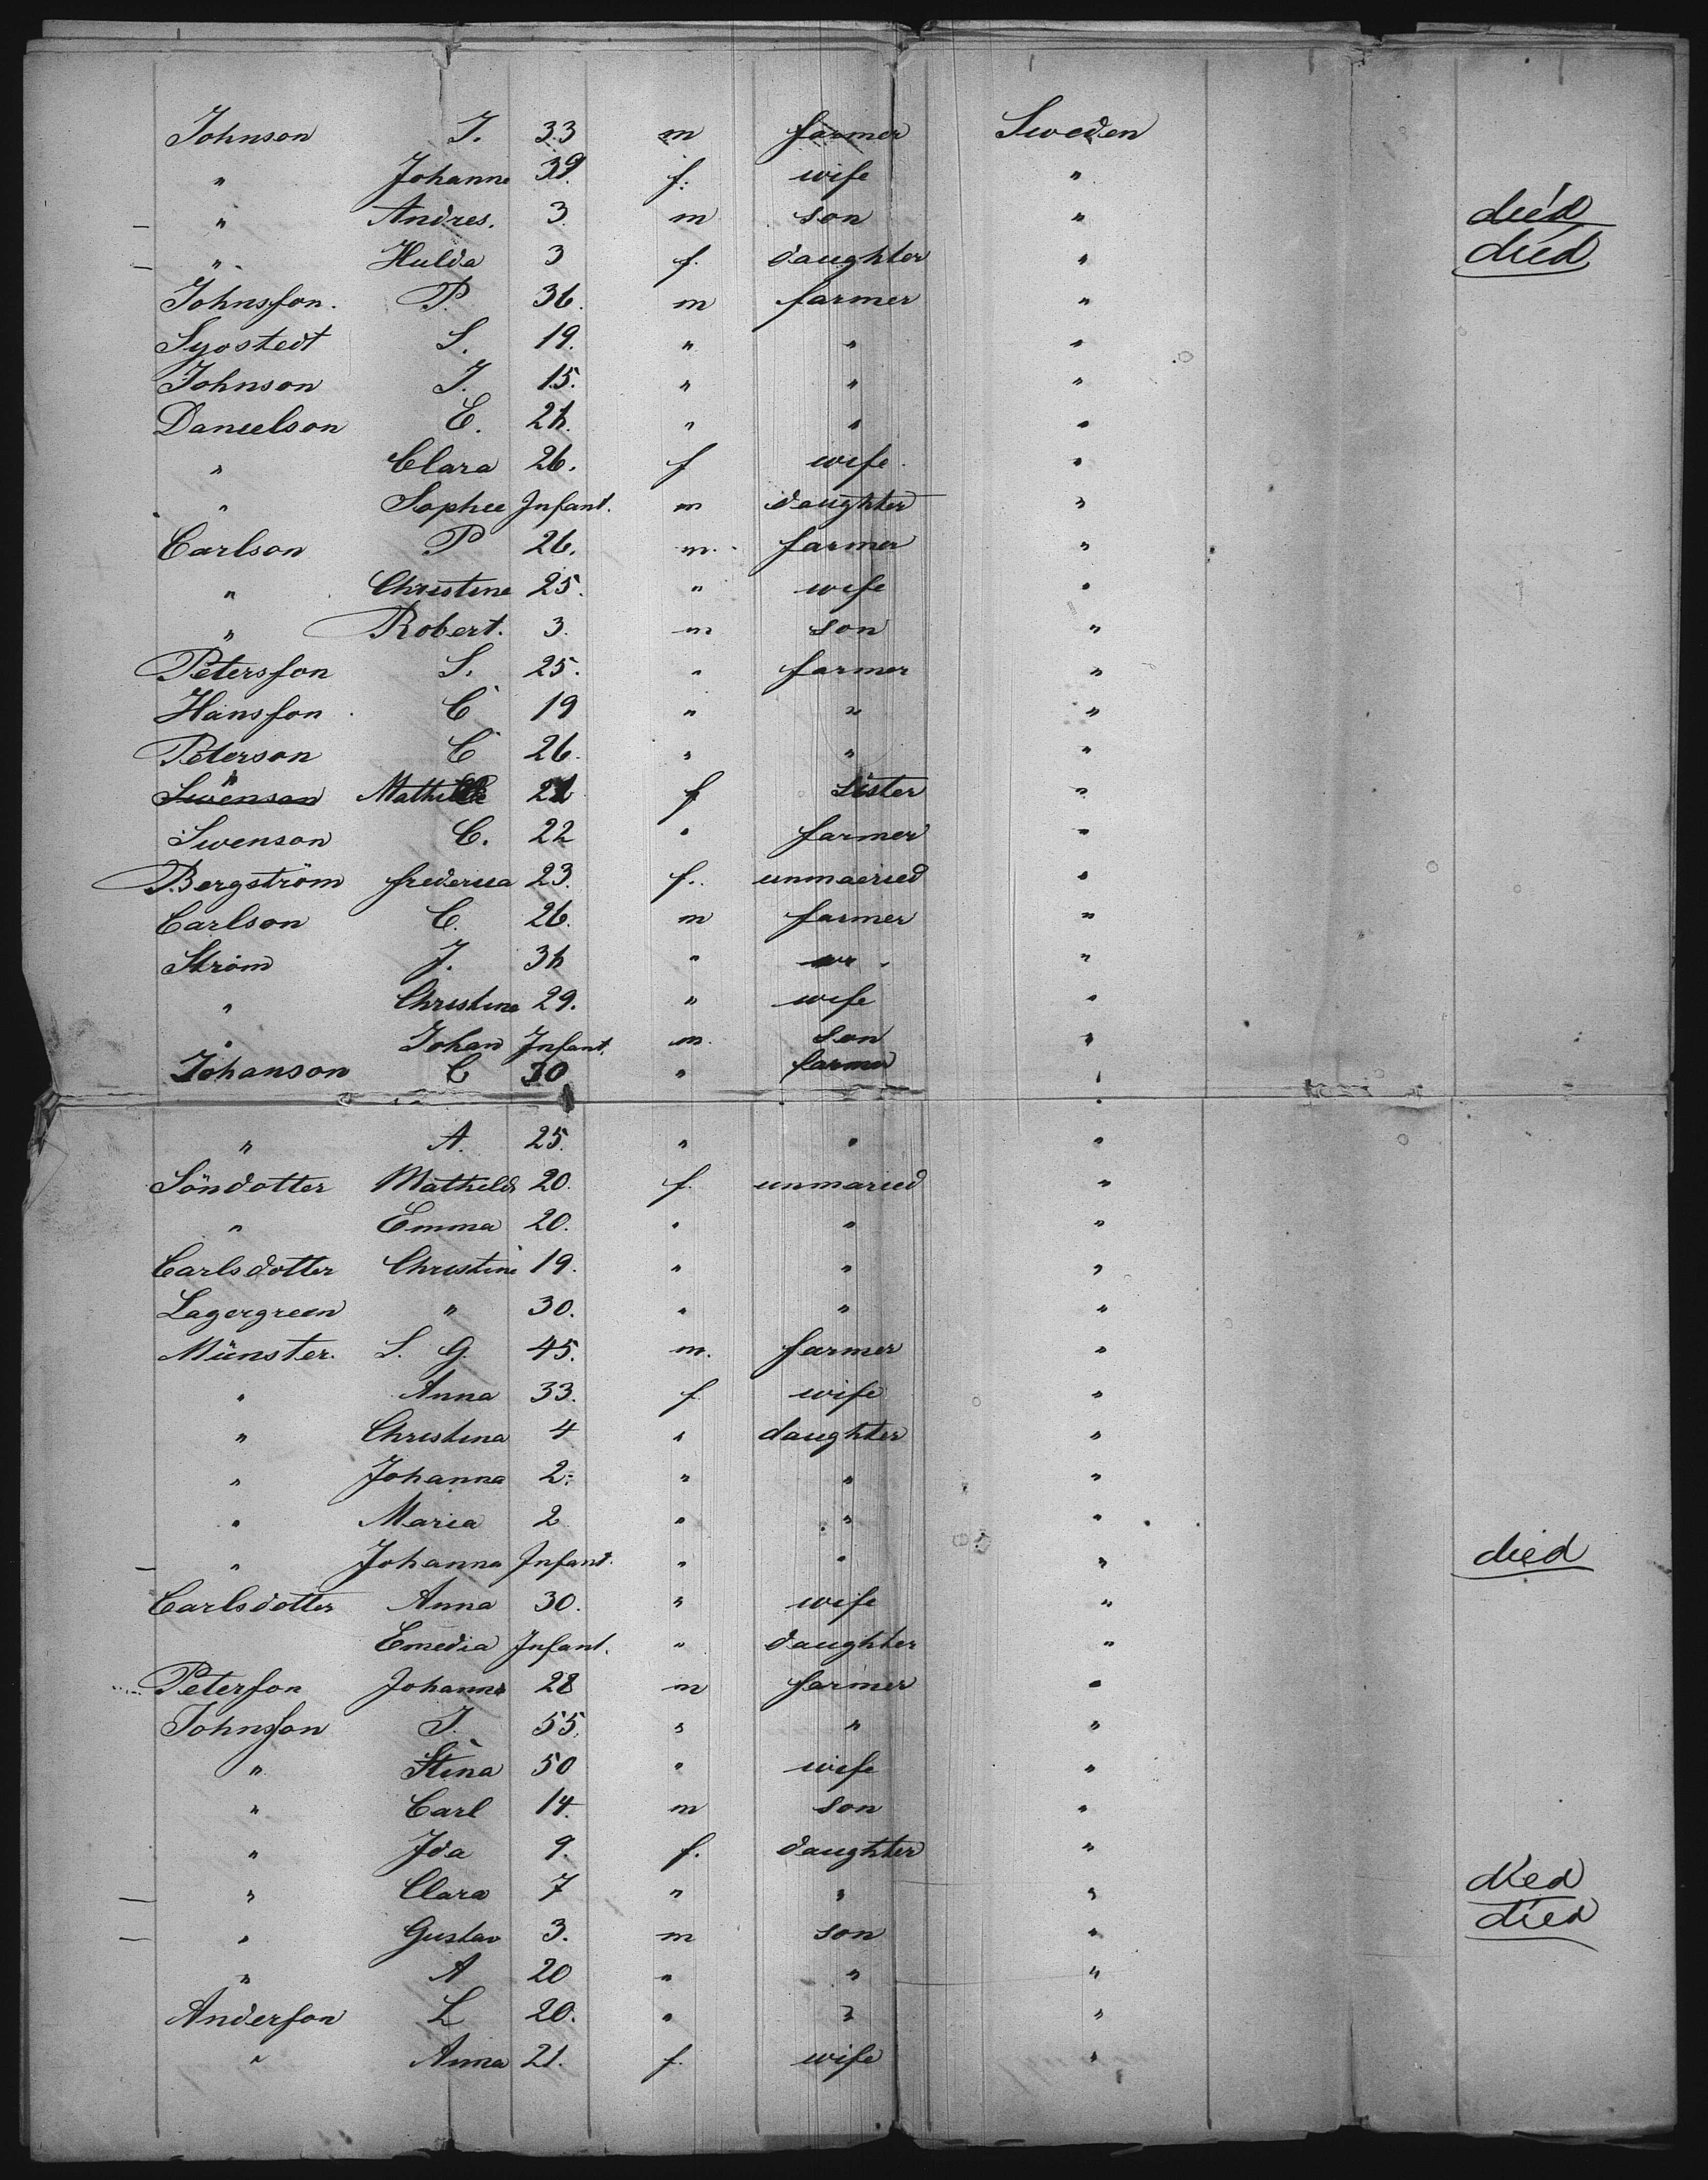 Johnson J. 33 m farmer Sweden
" Johanne 39. f. wife "
" Andres. 3. m son " died
" Hulda 3 f. daughter " died
Johnsson. P. 36. m farmer "
Syostedt S. 19. " " "
Johnson J. 15. " " "
Danielson E. 24. " " "
" Clara 26. f wife. "
" Sophie Infant. m daughter "
Carlson P 26. m. farmer "
" Christine 25. " wife "
" Robert. 3. m son "
Petersson S. 25. " farmer "
Hansson C 19 " " "
Peterson C 26. " " "
" Mathilde 21 f sister "
Swenson C. 22 " farmer "
Bergström frederica 23. f. unmaried "
Carlson C. 26. m farmer "
Ström J. 34 " "
" Christine 29. " wife "
" Johan Infant. m. son "
Johanson C 30 " farmer "
" A. 25. " " "
Söndotter Mathilde 20. f. unmaried "
" Emma 20. " " "
Carlsdotter Christine 19. " " "
Lagergreen " 30. " " "
Münster. S. G. 45. m. farmer "
" Anna 33. f wife "
" Christina 4 " daughter "
" Johanna 2. " " "
" Maria 2 " " "
" Johanna Infant. " " " died
Carlsdotter Anna 30. " wife "
Emedia Infant. " daughter "
Peterson Johanna 28 m farmer "
Johnsson J. 55. " " "
" Stina 50 " wife "
" Carl 14. m son "
" Ida 9. f. daughter "
" Clara 7 " " " died
" Gustav 3. m son " died
" A 20 " " "
Anderson L 20. " " "
" Anna 21. f. wife "